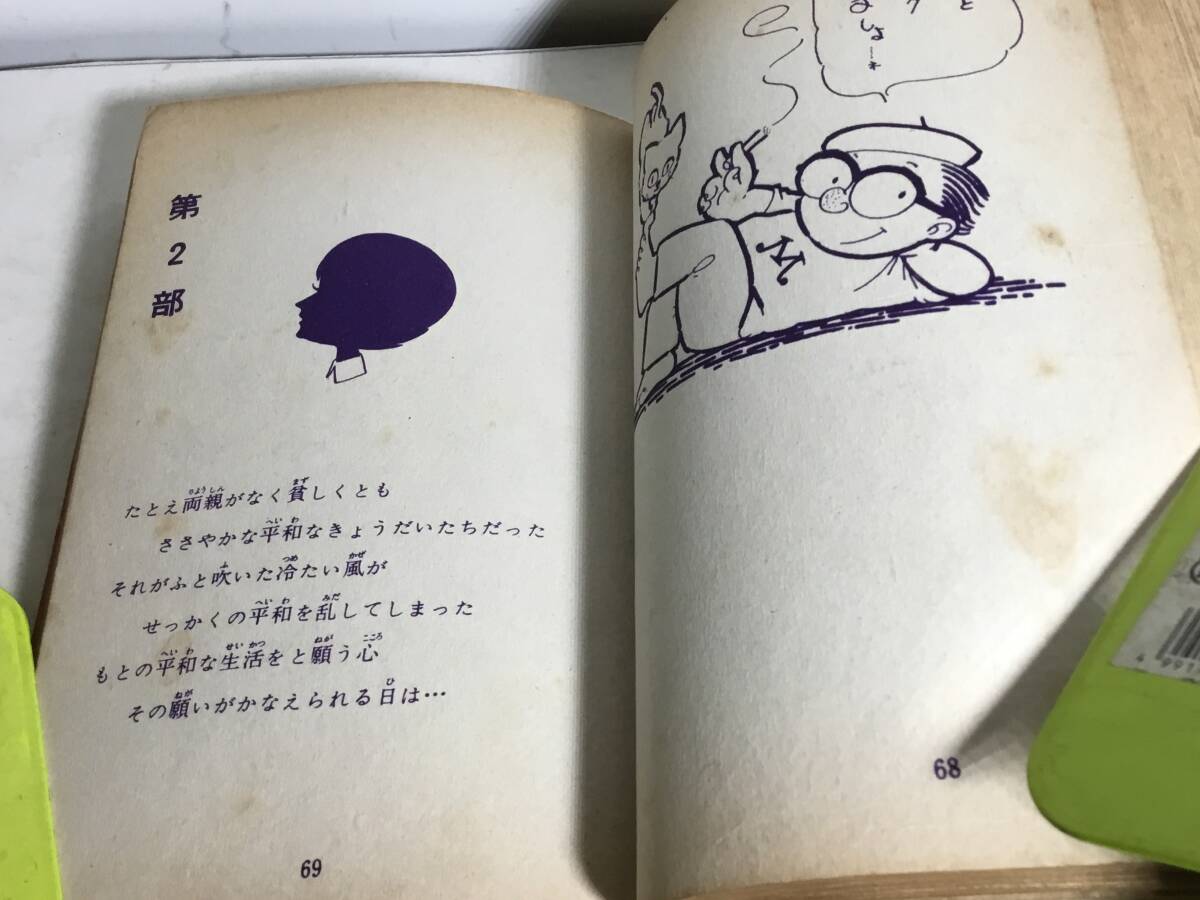 ましょ…*
68
第2部
たとえ両親がなく貧しくとも
ささやかな平和なきょうだいたちだった
それがふと吹いた冷たい風が
せっかくの平和を乱してしまった
もとの平和な生活をと願う心
その願いがかなえられる日は…
69